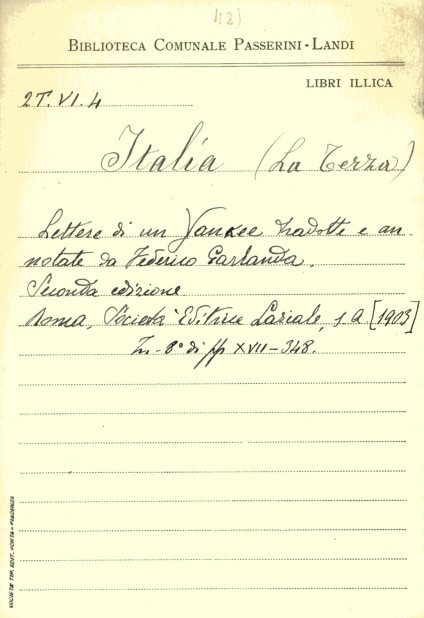 (18)
BIBLIOTECA COMUNALE PASSERINI-LANDI
LIBRI ILLICA
2T.VI.4
Italia (La Terza)
Lettere di un Yankee tradotte e an-
notate da Federico Garlanda.
Seconda edizione
Roma, Società Editrice Laziale, s.a. [1903]
In-8° di pp XVII-348.
SOCIETÀ TIP. EDIT. PORTA - PIACENZA